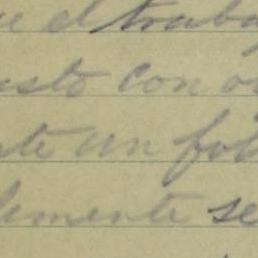 e el traba
sto con o
te un fo
lemente se